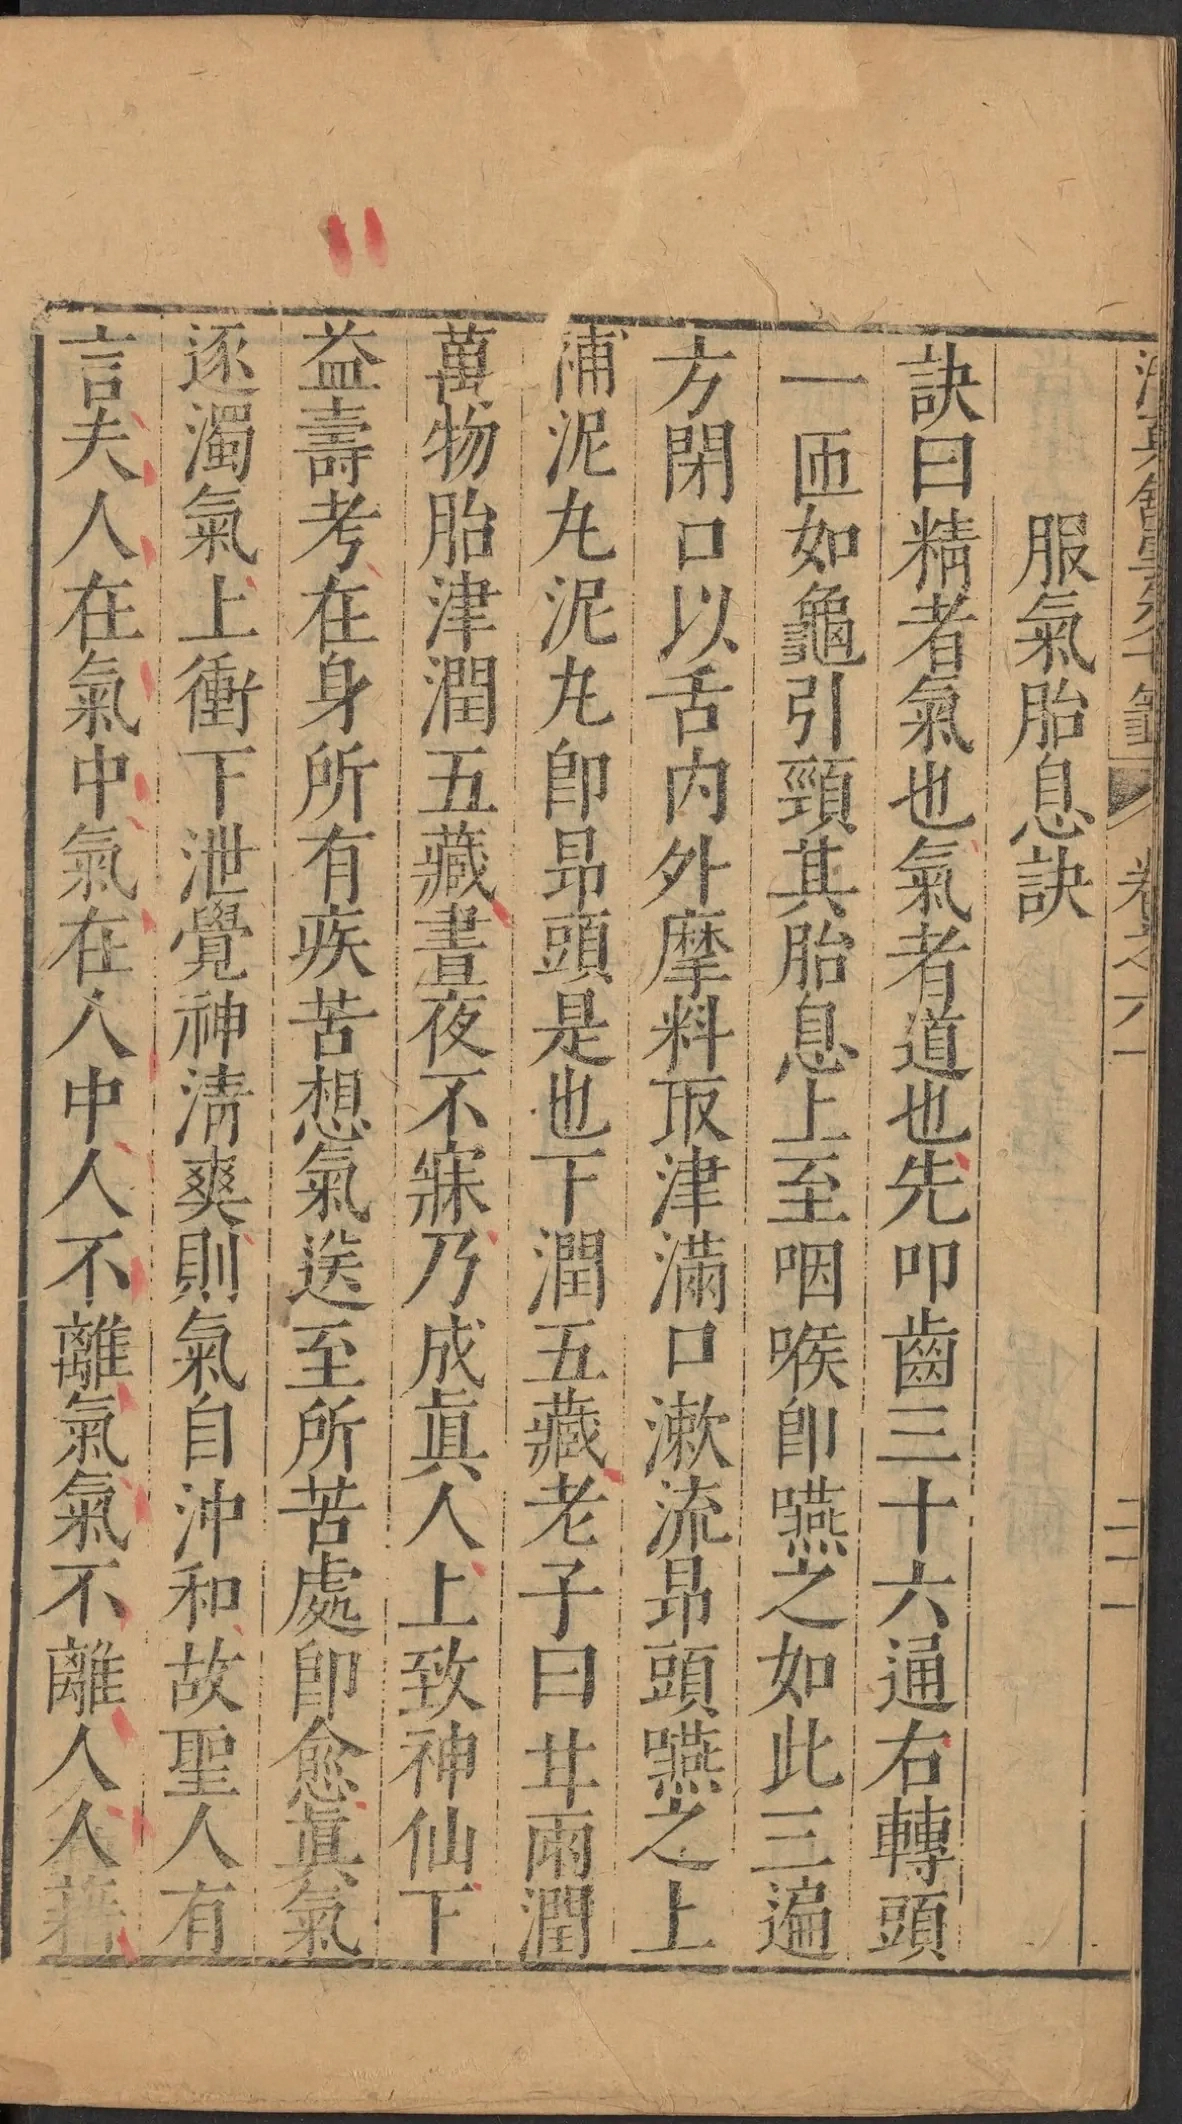 卷之六
二十一
服氣胎息訣
訣曰精者氣也氣者道也先叩齒三十六通右轉頭
一匝如龜引頸其胎息上至咽喉卽嚥之如此三遍
方閉口以舌內外摩料取津滿口漱流昂頭嚥之上
補泥丸泥丸卽昂頭是也下潤五藏老子曰甘雨潤
萬物胎津潤五藏晝夜不寐乃成眞人上致神仙下
益壽考在身所有疾苦想氣送至所苦處卽愈眞氣
逐濁氣上衝下泄覺神清爽則氣自沖和故聖人有
言夫人在氣中氣在人中人不離氣氣不離人人藉